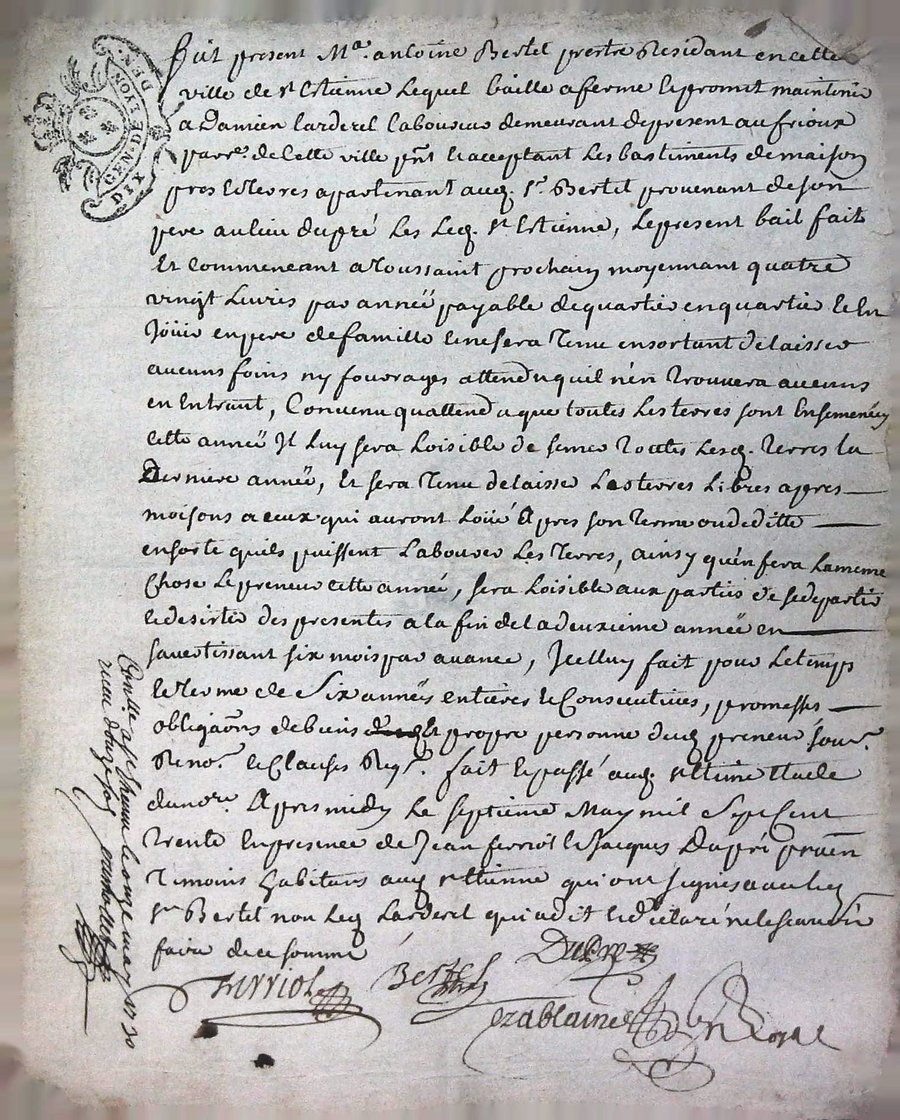 GEN. DE LYON
DIX DEN.
fut present Me. antoine Bertel prestre Residant en cette
ville de st Estienne Lequel baille a ferme & promit maintenir
a Damien Larderel Laboureur demeurant de present au frioux
parre. de cette ville pnt & acceptant Les bastiments de maison
pres & terres apartenant aud. sr. Bertel provenant de son
pere au lieu dupré Les Led. st Estienne, Le present bail fait
Et Commencant a Toussaint prochain moyennant quatre
vingt Livres par année payable de quartier en quartier & En
Joüir en pere de famille & ne sera Tenu en sortant de laisser
aucuns foins ny fourrages attendu quil n'en Trouvera aucuns
en Entrant, Convenu quattendu que toutes Les terres sont Ensemencées
cette année Il Luy sera Loisible de semer Toutes Lesd. Terres la
Derniere année, Et sera Tenu de laisser Les terres Libres apres
moisons a ceux qui auront Loüé Apres son Terme
en sorte quils puissent Labourer Les Terres, ainsy qu'en fera La meme
Chose Le preneur cette année, sera Loisible aux parties de se departir
& desister des presentes a la fin de la deuxieme année en
savertissant six mois par avance, Icelluy fait pour Le temps
& Terme de Six années entieres & Consecutives, promesses
obligaons de biens & propre personne dud preneur sour.
Reno. & Clauses Req. fait & passé aud. st Etienne Etude
du nore. Apres midy Le septieme May mil Sept Cent
trente En presence de Jean ferriol & Jacques Dupré
Temoins habitans aud st Etienne qui ont signés avec led
sr Bertel non Led Larderel qui a dit & declaré ne le scavoir
faire de ce sommé
Dupre
Ferriol
Bertel
Ezablaine
No Royal
Conlle. a st Etienne le onze may 1730
receu douze sols